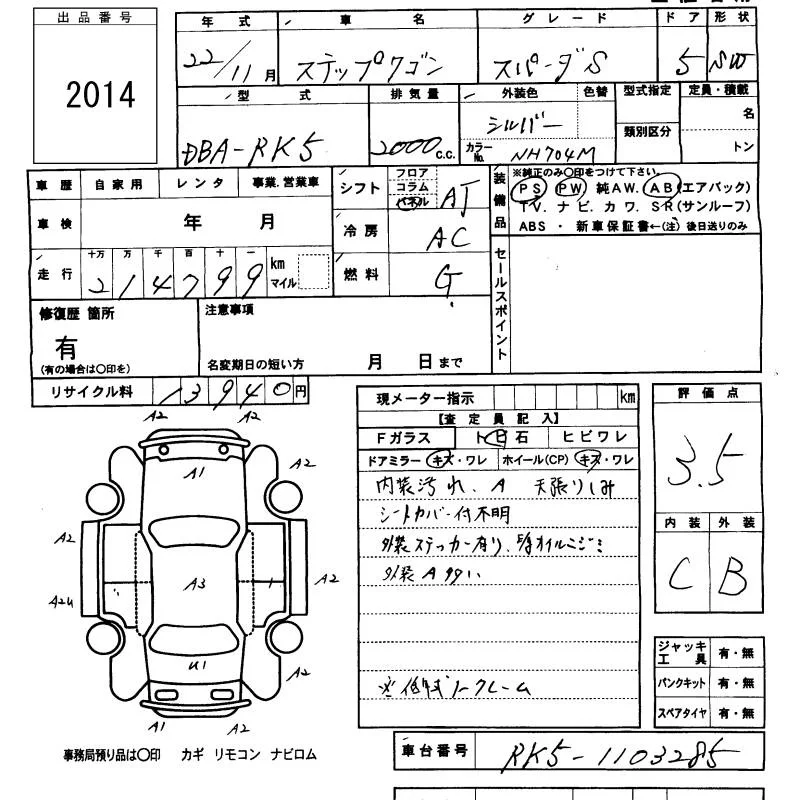 出品番号
2014
年式 車名 グレード ドア 形状
22/11月 ステップワゴン スパーダS 5 SW
型式 排気量 外装色 色替 型式指定 定員・積載
DBA-RK5 2000 C.C. シルバー 類別区分 名
カラーNo. NH704M トン
車歴 自家用 レンタ 事業.営業車
車検 年 月
走行 十万 万 千 百 十 一
214799 km マイル
シフト フロア コラム パネル AT
冷房 AC
燃料 G
装備品 ※純正のみ〇印をつけて下さい。
PS PW 純AW. AB(エアバック)
TV. ナビ. カワ. SR(サンルーフ)
ABS ・ 新車保証書←(注) 後日送りのみ
セールスポイント
修復歴 箇所
有
(有の場合は〇印を)
注意事項
名変期日の短い方 月 日まで
リサイクル料 13940円
現メーター指示 km
【査定員記入】
Fガラス トビ石 ヒビワレ
ドアミラー キズ・ワレ ホイール(CP) キズ・ワレ
内装汚れ、A 天張りしみ
シートカバー付不明
外装ステッカー有り、
外装A
評価点
3.5
内装 外装
C B
ジャッキ工具 有・無
パンクキット 有・無
スペアタイヤ 有・無
A2 A2
A1
A2
A2
A2
A3 1 A2
A2U
U1
A2
A1 A2
事務局預り品は〇印 カギ リモコン ナビロム
車台番号 RK5-1103285